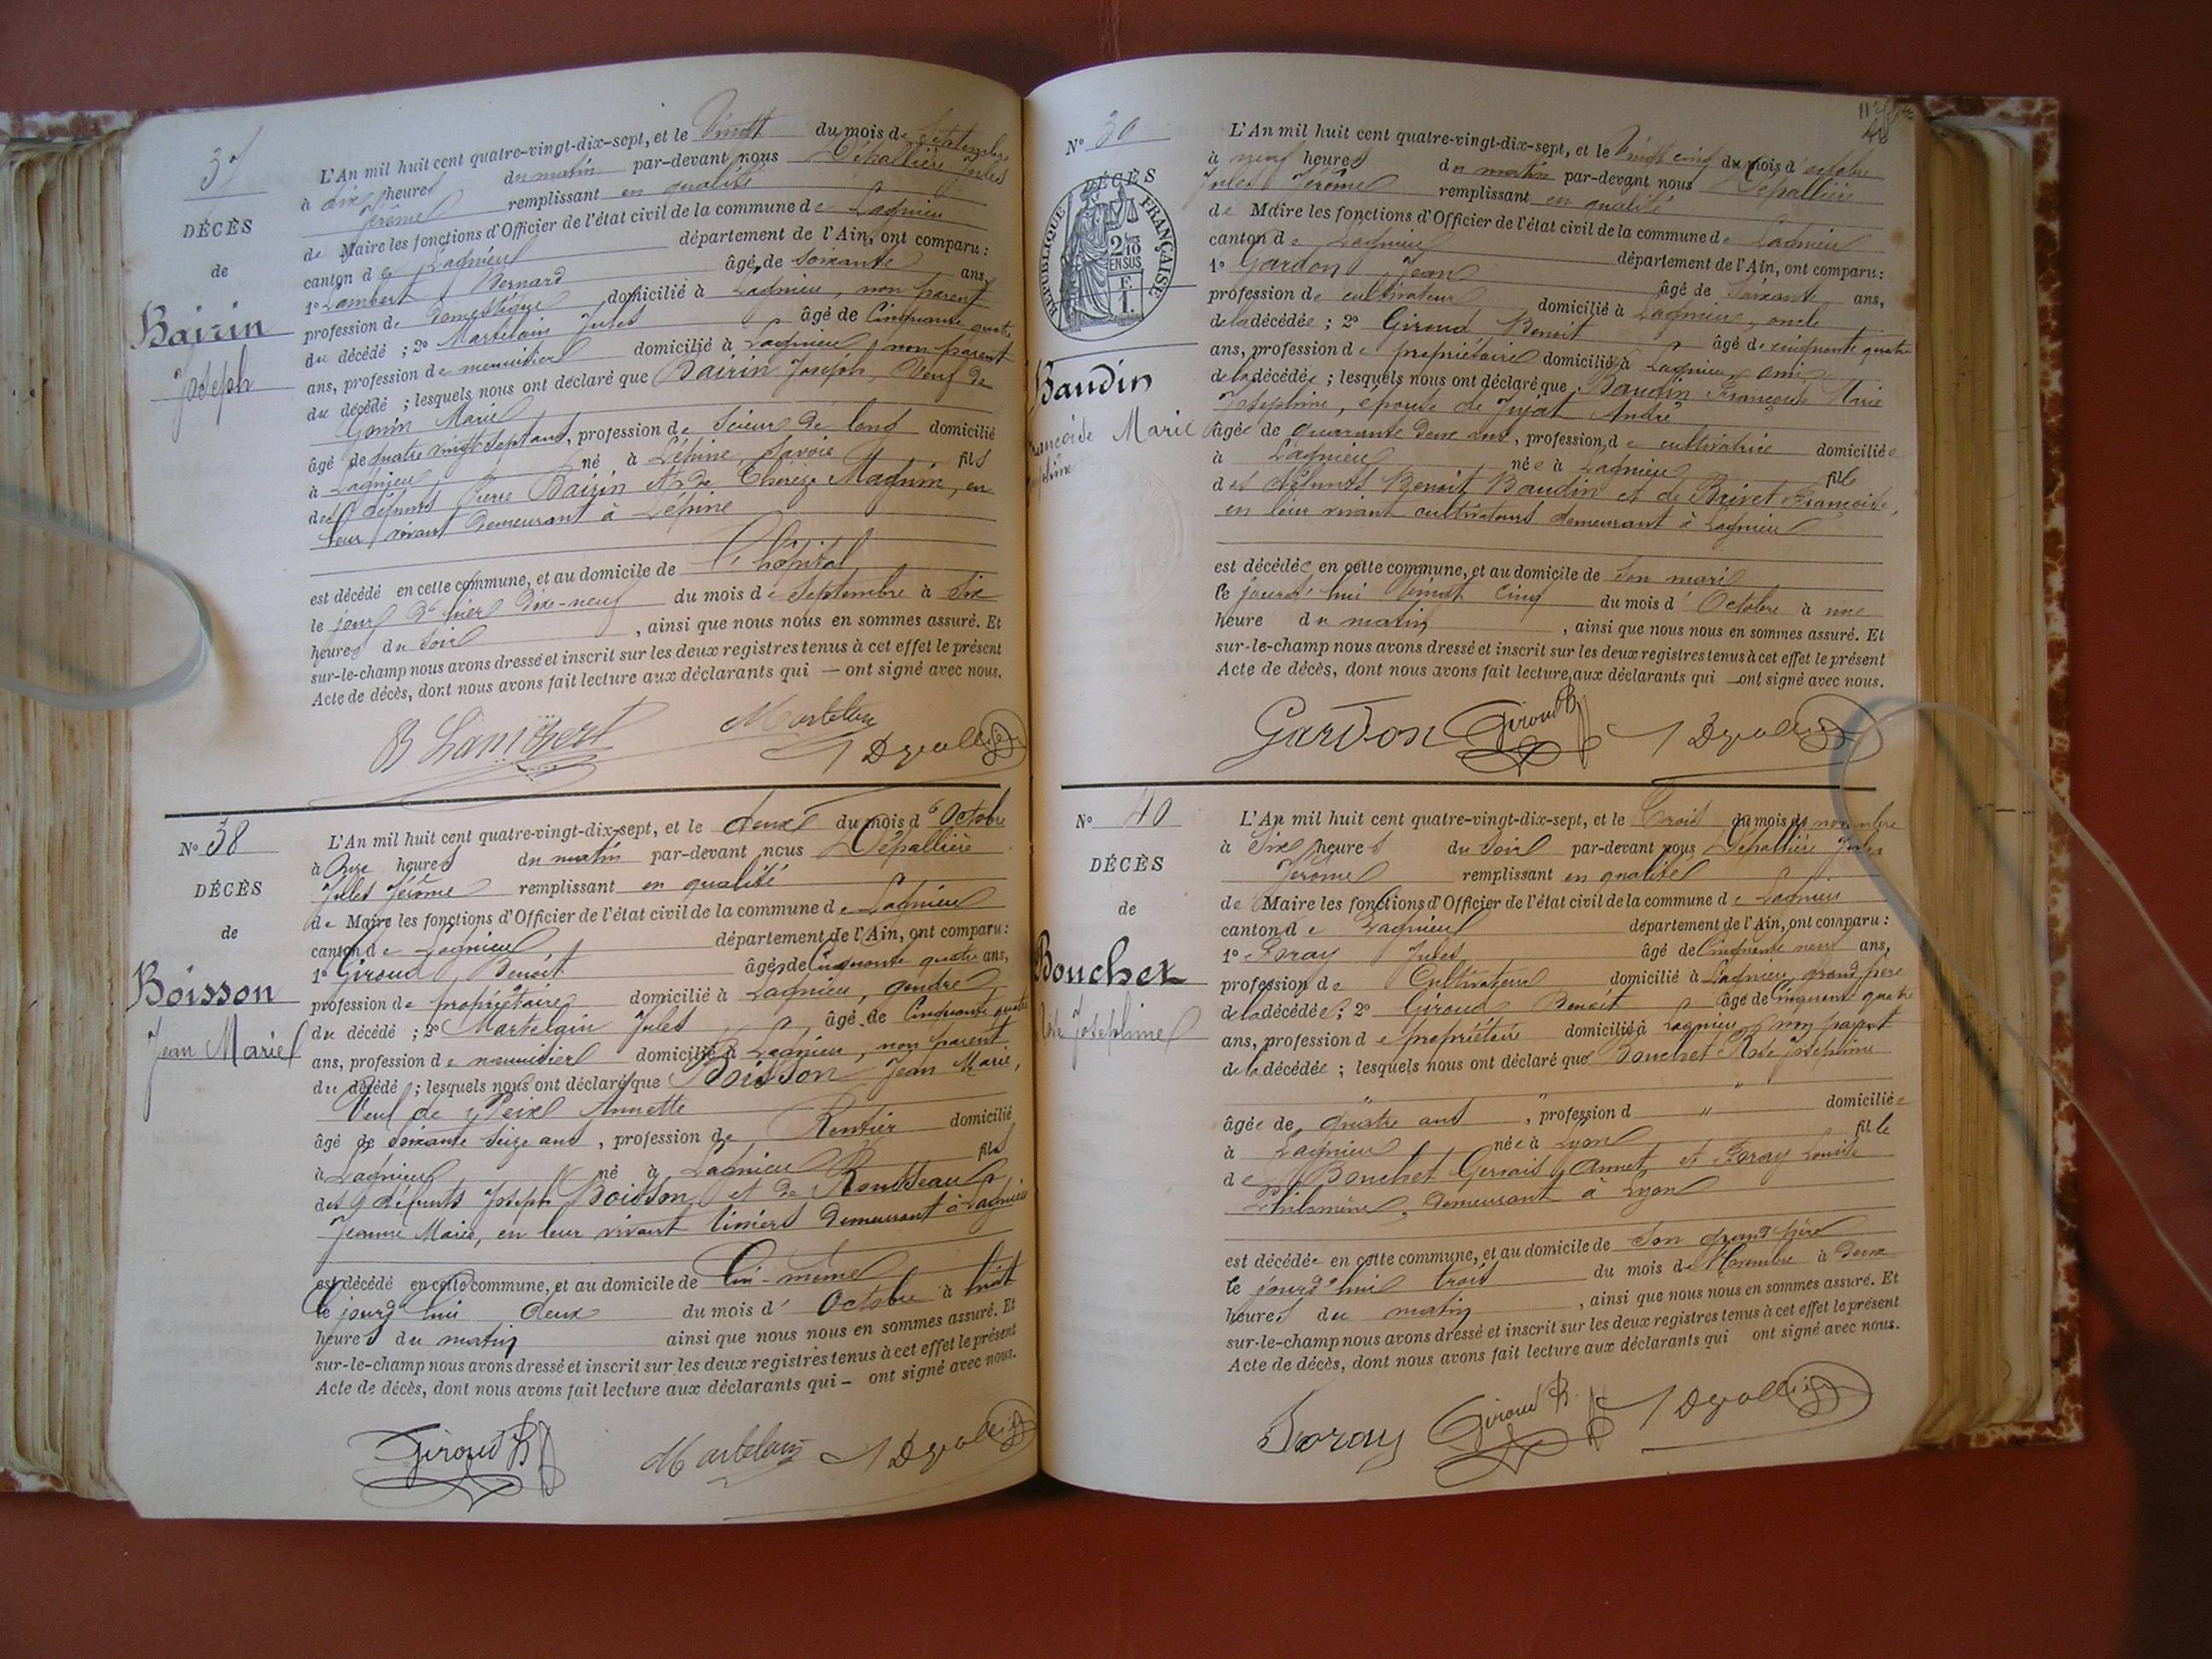 37
DÉCÈS
de
Bairin
Joseph
L'An mil huit cent quatre-vingt-dix-sept, et le Vingt du mois de Septembre
à dix heures du matin par-devant nous Dépallière Jules
Jérôme remplissant en qualité
de Maire les fonctions d'Officier de l'état civil de la commune de Lagnieu
canton de Lagnieu département de l'Ain, ont comparu :
1° Lambert Bernard âgé de soixante ans,
profession de domestique domicilié à Lagnieu, non parent
du décédé ; 2° Martelain Jules âgé de Cinquante quatre
ans, profession de menuisier domicilié à Lagnieu, non parent
du décédé ; lesquels nous ont déclaré que Bairin Joseph, Veuf de
Gonin Marie
âgé de quatre vingt sept ans, profession de Scieur de long domicilié
à Lagnieu né à Lépine, Savoie fils
des défunts Pierre Bairin et de Thérèze Magnin, en
leur vivant demeurant à Lépine
est décédé en cette commune, et au domicile de l'hôpital
le jour d'hier dix-neuf du mois de Septembre à Six
heures du soir, ainsi que nous nous en sommes assuré. Et
sur-le-champ nous avons dressé et inscrit sur les deux registres tenus à cet effet le présent
Acte de décès, dont nous avons fait lecture aux déclarants qui — ont signé avec nous.
B Lambert Martelain J Depallière
N° 38
DÉCÈS
de
Boisson
Jean Marie
L'An mil huit cent quatre-vingt-dix-sept, et le deux du mois d'Octobre
à Onze heures du matin par-devant nous Dépallière
Jules Jérôme remplissant en qualité
de Maire les fonctions d'Officier de l'état civil de la commune de Lagnieu
canton de Lagnieu département de l'Ain, ont comparu :
1° Giroud Benoit âgé de Cinquante quatre ans,
profession de propriétaire domicilié à Lagnieu, gendre
du décédé ; 2° Martelain Jules âgé de Cinquante quatre
ans, profession de menuisier domicilié à Lagnieu, non parent
du décédé ; lesquels nous ont déclaré que Boisson Jean Marie,
Veuf de Annette
âgé de soixante seize ans, profession de Rentier domicilié
à Lagnieu né à Lagnieu fils
des défunts Joseph Boisson et de Rousseau
Jeanne Marie, en leur vivant demeurant à Lagnieu
est décédé en cette commune, et au domicile de lui-même
le jourd'hui deux du mois d'Octobre à huit
heures du matin ainsi que nous nous en sommes assuré. Et
sur-le-champ nous avons dressé et inscrit sur les deux registres tenus à cet effet le présent
Acte de décès, dont nous avons fait lecture aux déclarants qui — ont signé avec nous.
Giroud B Martelain J Depallière
48
N° 39
DÉCÈS
RÉPUBLIQUE FRANÇAISE
2/10 EN SUS
F. 1.
Baudin
Françoise Marie
Joséphine
L'An mil huit cent quatre-vingt-dix-sept, et le Vingt cinq du mois d'octobre
à neuf heures du matin par-devant nous Dépallière
Jules Jérôme remplissant en qualité
de Maire les fonctions d'Officier de l'état civil de la commune de Lagnieu
canton de Lagnieu département de l'Ain, ont comparu :
1° Gardon Jean âgé de Soixante ans,
profession de cultivateur domicilié à Lagnieu, oncle
de la décédée ; 2° Giroud Benoit âgé de cinquante quatre
ans, profession de propriétaire domicilié à Lagnieu, ami
de la décédée ; lesquels nous ont déclaré que Baudin Françoise Marie
Joséphine, épouse de Jujat André
âgée de quarante deux ans, profession de cultivatrice domiciliée
à Lagnieu née à Lagnieu fille
des défunts Benoit Baudin et de Brivet Françoise,
en leur vivant cultivateurs demeurant à Lagnieu
est décédée en cette commune, et au domicile de son mari
le jourd'hui Vingt Cinq du mois d'Octobre à une
heure du matin, ainsi que nous nous en sommes assuré. Et
sur-le-champ nous avons dressé et inscrit sur les deux registres tenus à cet effet le présent
Acte de décès, dont nous avons fait lecture aux déclarants qui — ont signé avec nous.
Gardon Giroud B J Depallière
N° 40
DÉCÈS
de
Bouchet
Rose Joséphine
L'An mil huit cent quatre-vingt-dix-sept, et le Trois du mois de novembre
à Six heures du soir par-devant nous Dépallière Jules
Jérôme remplissant en qualité
de Maire les fonctions d'Officier de l'état civil de la commune de Lagnieu
canton de Lagnieu département de l'Ain, ont comparu :
1° Foray Jules âgé de Cinquante neuf ans,
profession de Cultivateur domicilié à Lagnieu, grand père
de la décédée ; 2° Giroud Benoit âgé de Cinquante quatre
ans, profession de propriétaire domicilié à Lagnieu, non parent
de la décédée ; lesquels nous ont déclaré que Bouchet Rose Joséphine
âgée de quatre ans, profession d " domiciliée
à Lagnieu née à Lyon fille
de Bouchet Gervais Annet et Foray Louise
Philomène, demeurant à Lyon
est décédée en cette commune, et au domicile de son grand père
le jourd'hui trois du mois de Novembre à deux
heures du matin, ainsi que nous nous en sommes assuré. Et
sur-le-champ nous avons dressé et inscrit sur les deux registres tenus à cet effet le présent
Acte de décès, dont nous avons fait lecture aux déclarants qui ont signé avec nous.
Foray Giroud B. J Depallière